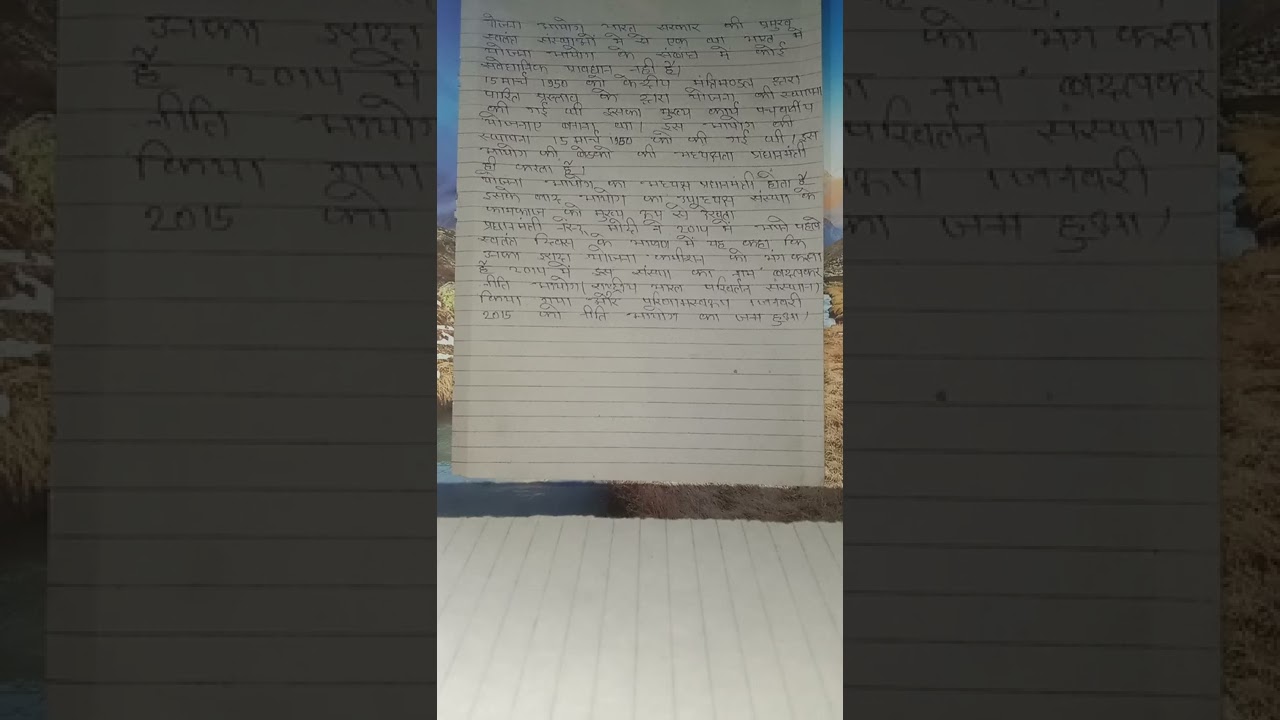 योजना आयोग भारत सरकार की प्रमुख
स्वतंत्र संस्थाओं में से एक था भारत में
योजना आयोग के संबंध में कोई
संवैधानिक प्रावधान नहीं है।
15 मार्च 1950 को केन्द्रीय मंत्रिमण्डल द्वारा
पारित प्रस्ताव के द्वारा योजना की स्थापना
की गई थी इसका मुख्य कार्य पंचवर्षीय
योजनाएं बनाना था। इस आयोग की
स्थापना 15 मार्च 1950 को की गई थी। इस
आयोग की बैठकों की अध्यक्षता प्रधानमंत्री
ही करता है।
योजना आयोग का अध्यक्ष प्रधानमंत्री होता है
इसके बाद आयोग का उपाध्यक्ष संस्था के
कामकाज को मुख्य रूप से देखता
प्रधानमंत्री नरेन्द्र मोदी ने 2014 में अपने पहले
स्वतंत्र दिवस के भाषण में यह कहा कि
उनका इरादा योजना कमीशन को भंग करना
है 2014 में इस संस्था का नाम बदलकर
नीति आयोग (राष्ट्रीय भारत परिवर्तन संस्थान)
किया गया और परिणामस्वरूप 1 जनवरी
2015 को नीति आयोग का जन्म हुआ।